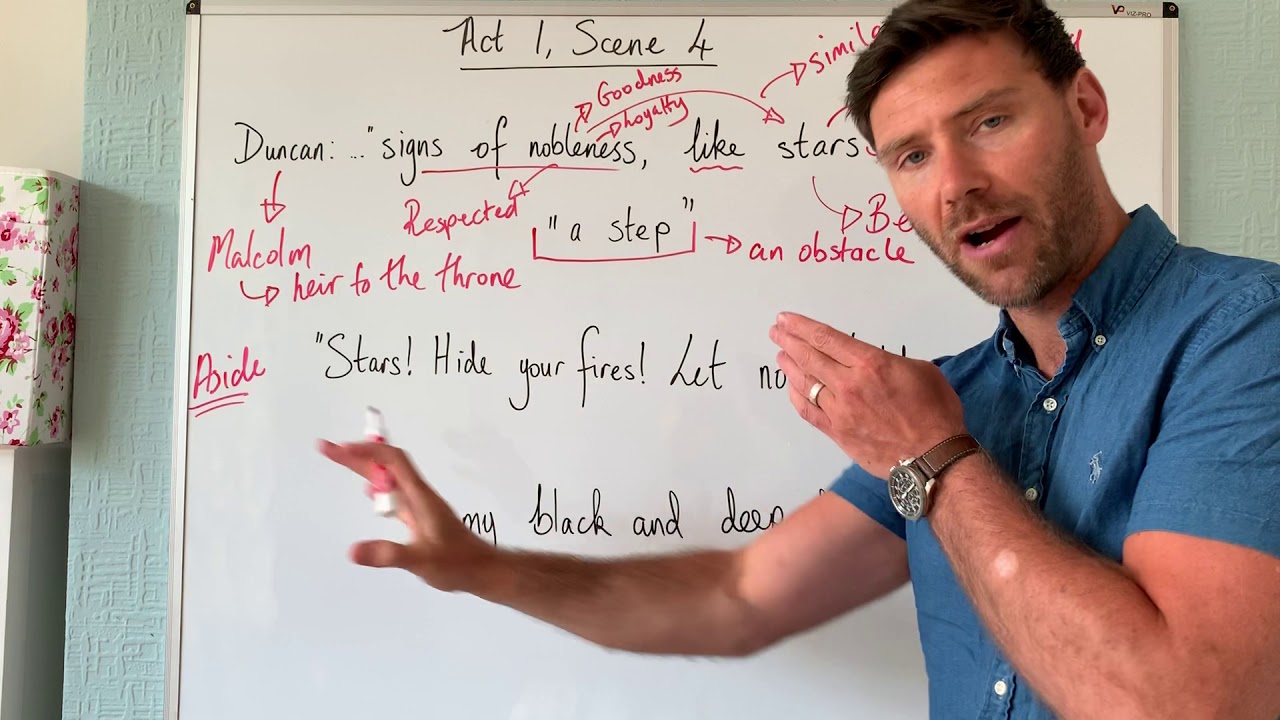 VIZ-PRO
Act 1, Scene 4
simile
Goodness
Loyalty
Duncan: ... "signs of nobleness, like stars
Respected
"a step"
an obstacle
Malcolm
heir to the throne
Aside
"Stars! Hide your fires! Let
my black and deep